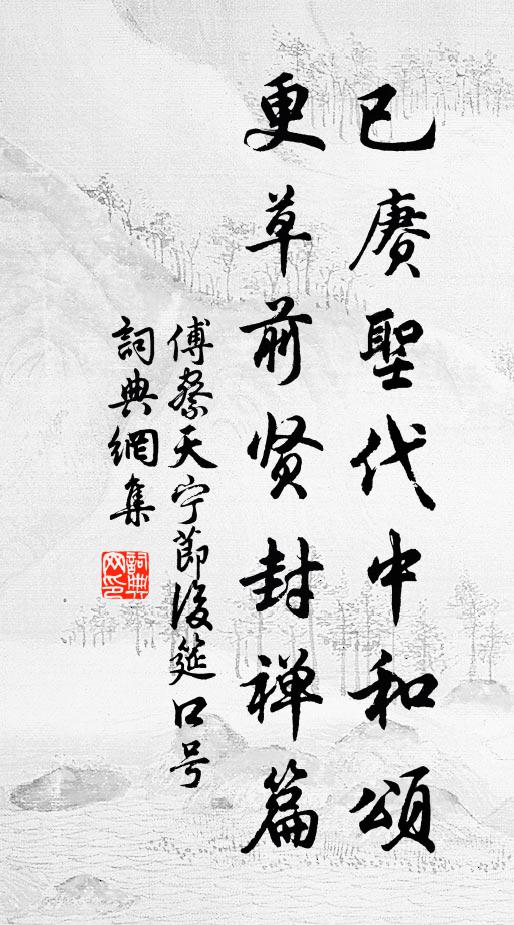 已赓聖代中和頌
更草前贤封禅篇
傅察天宁節後筵口号
詞典網集
詞典网印